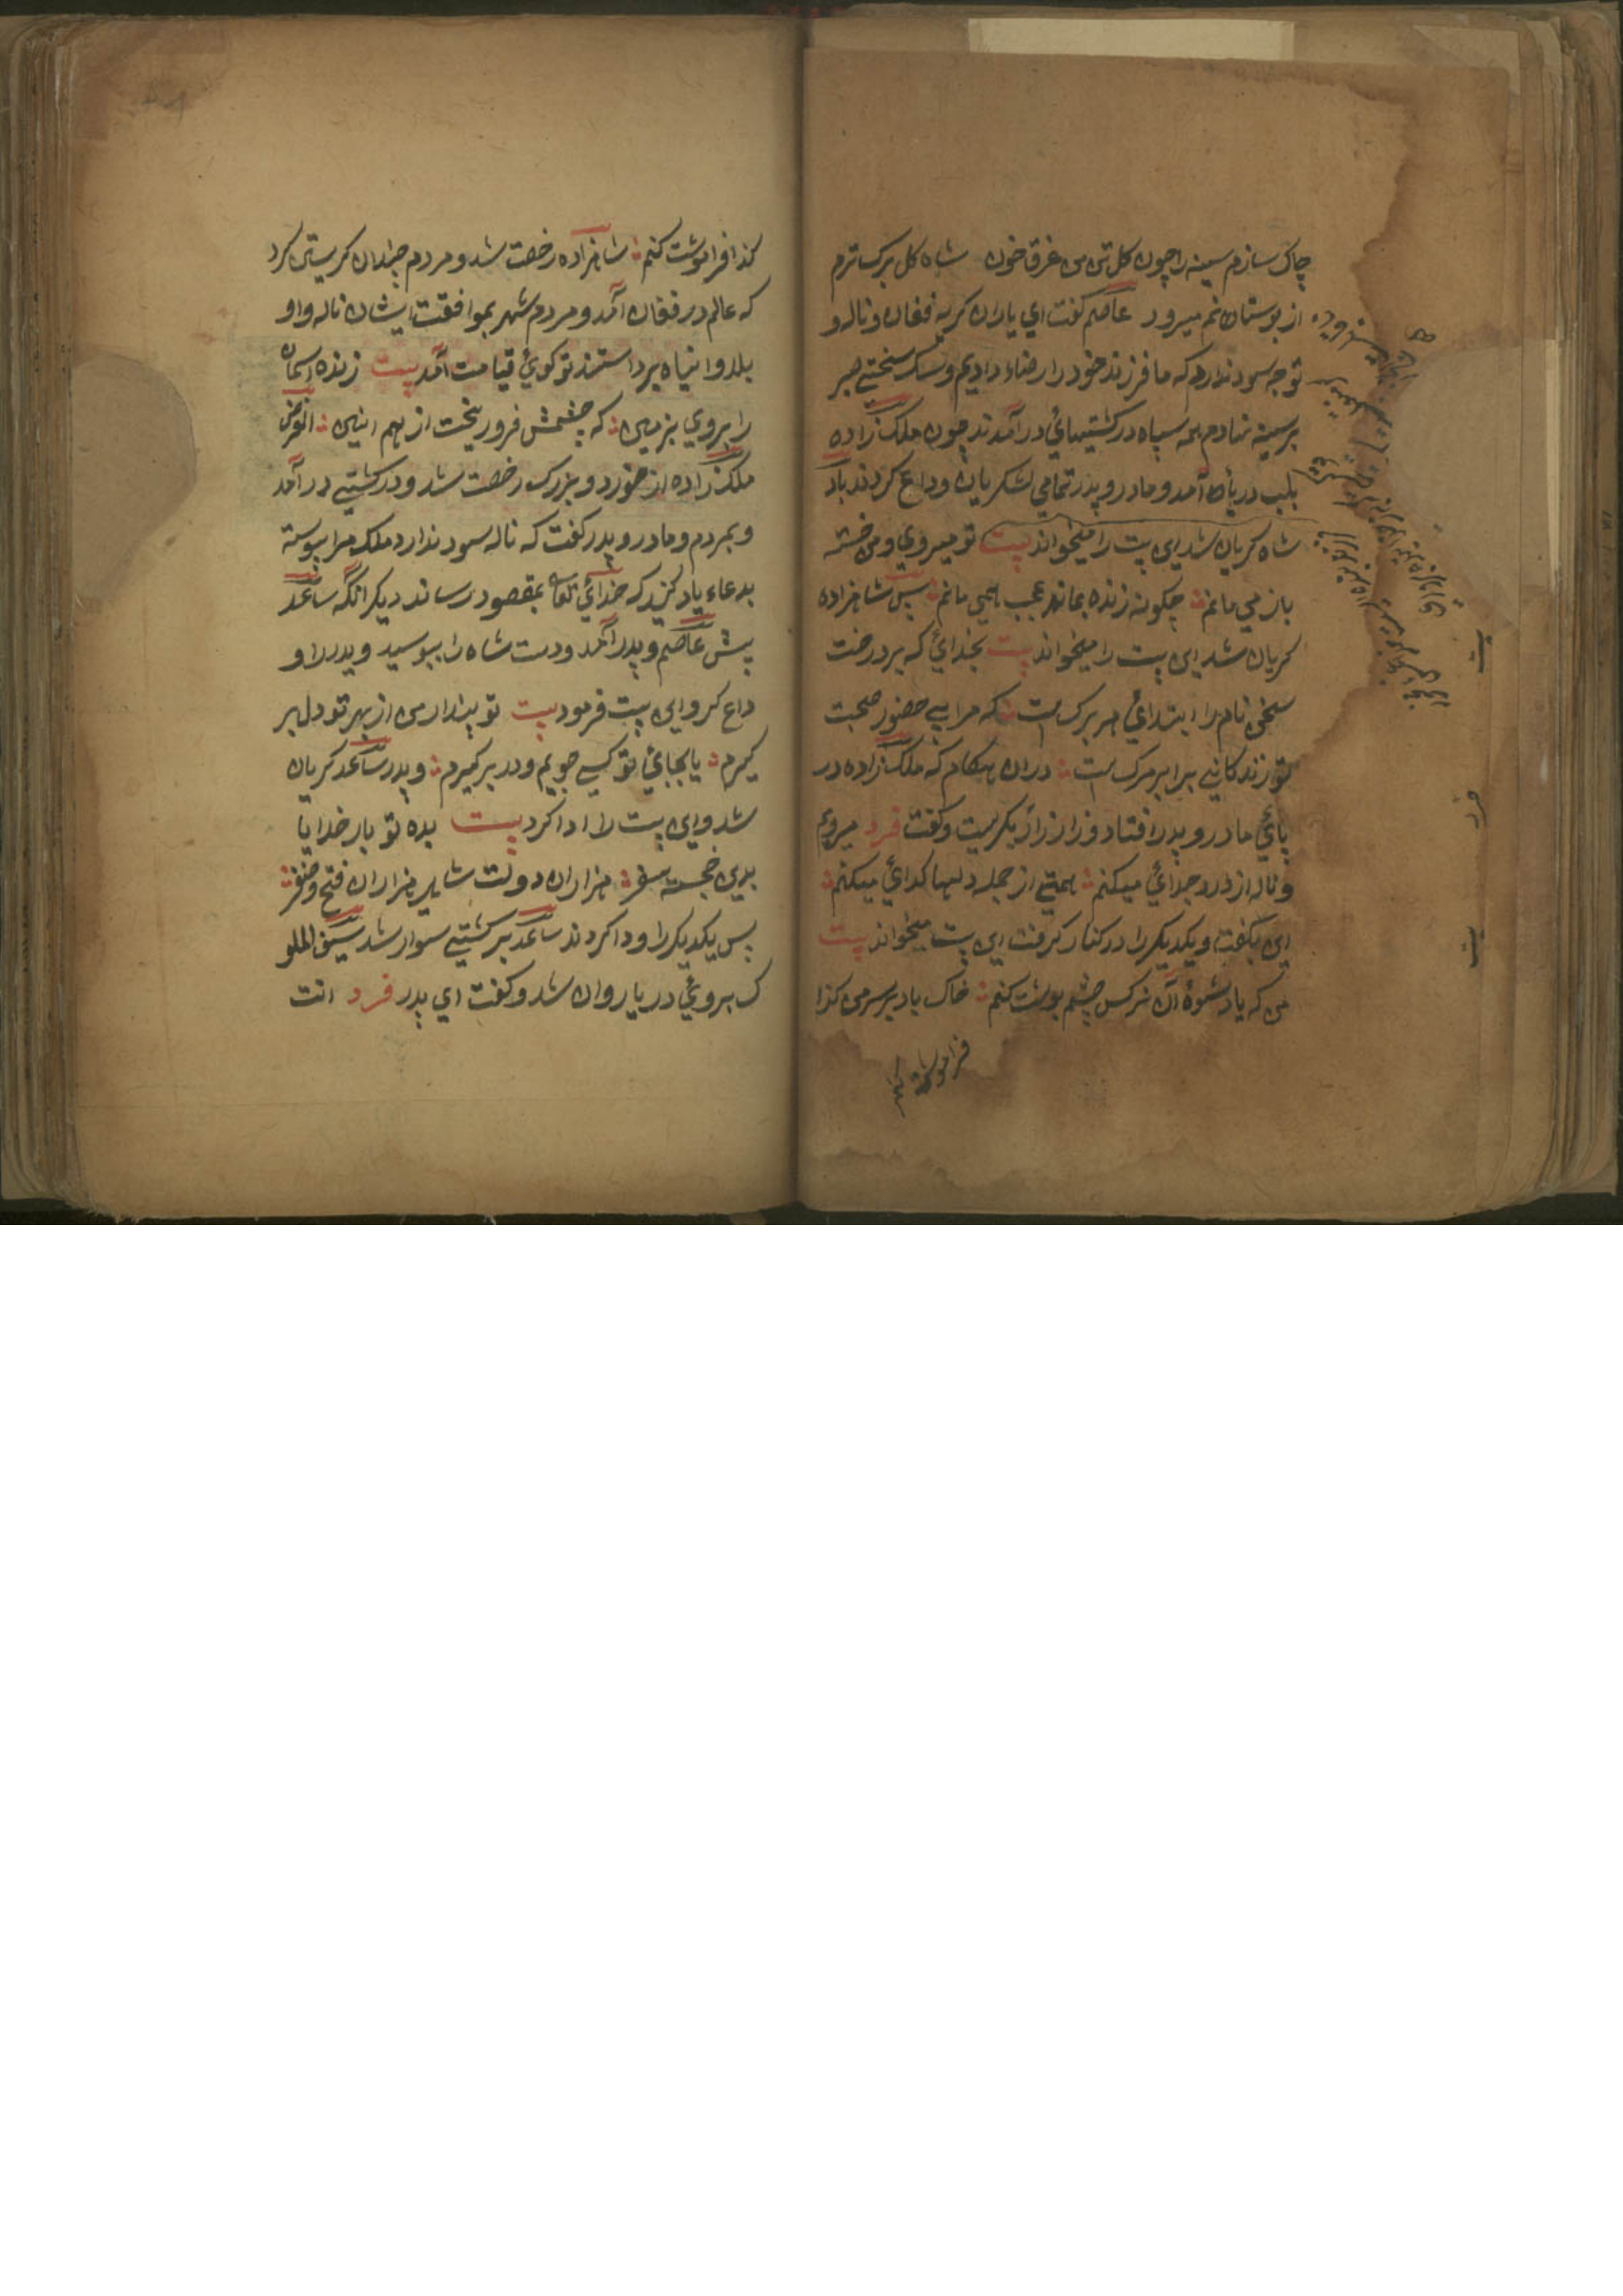 چاک سازم سینه را چون کل تن من غرق خون شاه کل برک ترم
از بوستانم میرود عاصم کفت ای یاران کریه فغان و ناله و
توجه سود ندارد که ما فرزند خود را رضاء دادیم و سنک سختی صبر
بر سینه نهادم همه سپاه در کشتیهائ در آمدند چون ملک زاده
بلب دریا آمد و مادر و پدر تمامی لشکریان وداع کردند باد
شاه کریان شد این بیت را میخواند بیت تو میروی و من خسته
باز می مانم چکونه زنده بمانم عجب همی مانم پس شاهزاده
کریان شد این بیت را میخواند بیت بخدائ که بر درخت
سخن نام را ابتدائ هر برک است که مرا بی حضور صحبت
تو زندکانی برابر مرک است دران هنکام که ملک زاده در
پائ مادر و پدر افتاد و زار زار بکریست و کفت فرد میروم
و ناله از درد جدائ میکنم همتی از جمله دلها کدائ میکنم
این بکفت و یکدیکر را در کنار کرفت این بیت میخواند بیت
من که یاد شیوهٔ آن نرکس چشم بوشت کنم خاک باد بر سر من کذا
بیت
فرد
بیت
کذا فراموشت کنم شاهزاده رخصت شد و مردم چندان کریستن کرد
که عالم در فغان آمد و مردم شهر بموافقت ایشان ناله و او
بلدوانیاه برداستند تو کوئ قیامت آمد بیت زنده آسمان
را بروی زمین که چشمش فرو ریخت از بهم انین الغرض
ملک زاده از خورد و بزرک رخصت شد و در کشتی در آمد
و بمردم و مادر و پدر کفت که ناله سود ندارد ملک مرا پیوسته
بدعاء یاد کنید که خدائ تعالی بمقصود رساند دیکر انکه ساعد
پیش عاصم و پدر آمد و دست شاه را ببوسید و پدر را و
داع کرد و این بیت فرمود بیت تو پندار من از بهر تو دل بر
کیرم یا بجائ تو کسی جویم و در بر کیرم و پدر ساعد کریان
شد و این بیت را ادا کرد بیت بده تو بار خدایا
بدین خجسته سفر هزاران دولت شاید هزاران فتح و ظفر
پس یکدیکر را ودا کردند ساعد بر کشتی سوار شد سیف الملو
ک بروئ دریا روان شد و کفت ای پدر فرد انت